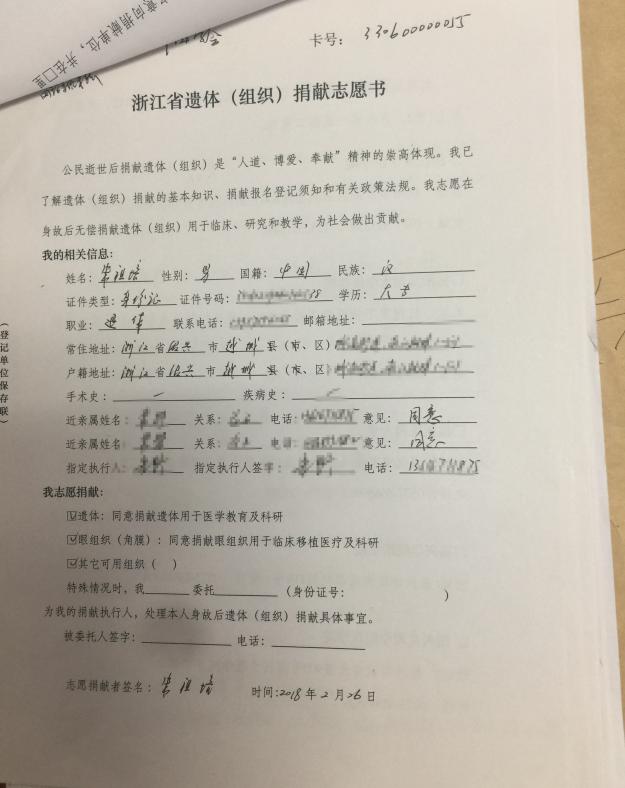 意向捐献单位，并在□里
卡号： 330600000015
浙江省遗体（组织）捐献志愿书
公民逝世后捐献遗体（组织）是“人道、博爱、奉献”精神的崇高体现。我已
了解遗体（组织）捐献的基本知识、捐献报名登记须知和有关政策法规。我志愿在
身故后无偿捐献遗体（组织）用于临床、研究和教学，为社会做出贡献。
我的相关信息：
姓名： 性别：男 国籍：中国 民族：汉
证件类型：身份证 证件号码： 学历：大专
职业：退休 联系电话： 邮箱地址：
常住地址：浙江省绍兴市越城县（市、区）
户籍地址：浙江省绍兴市越城县（市、区）
手术史： 疾病史：
近亲属姓名： 关系： 电话： 意见：同意
近亲属姓名： 关系： 电话： 意见：同意
指定执行人： 指定执行人签字： 电话：
我志愿捐献：
☑遗体：同意捐献遗体用于医学教育及科研
☑眼组织（角膜）：同意捐献眼组织用于临床移植医疗及科研
☑其它可用组织（ ）
特殊情况时，我 委托 （身份证号： ）
为我的捐献执行人，处理本人身故后遗体（组织）捐献具体事宜。
被委托人签字： 电话：
志愿捐献者签名： 时间：2018年2月26日
（登记单位保存联）